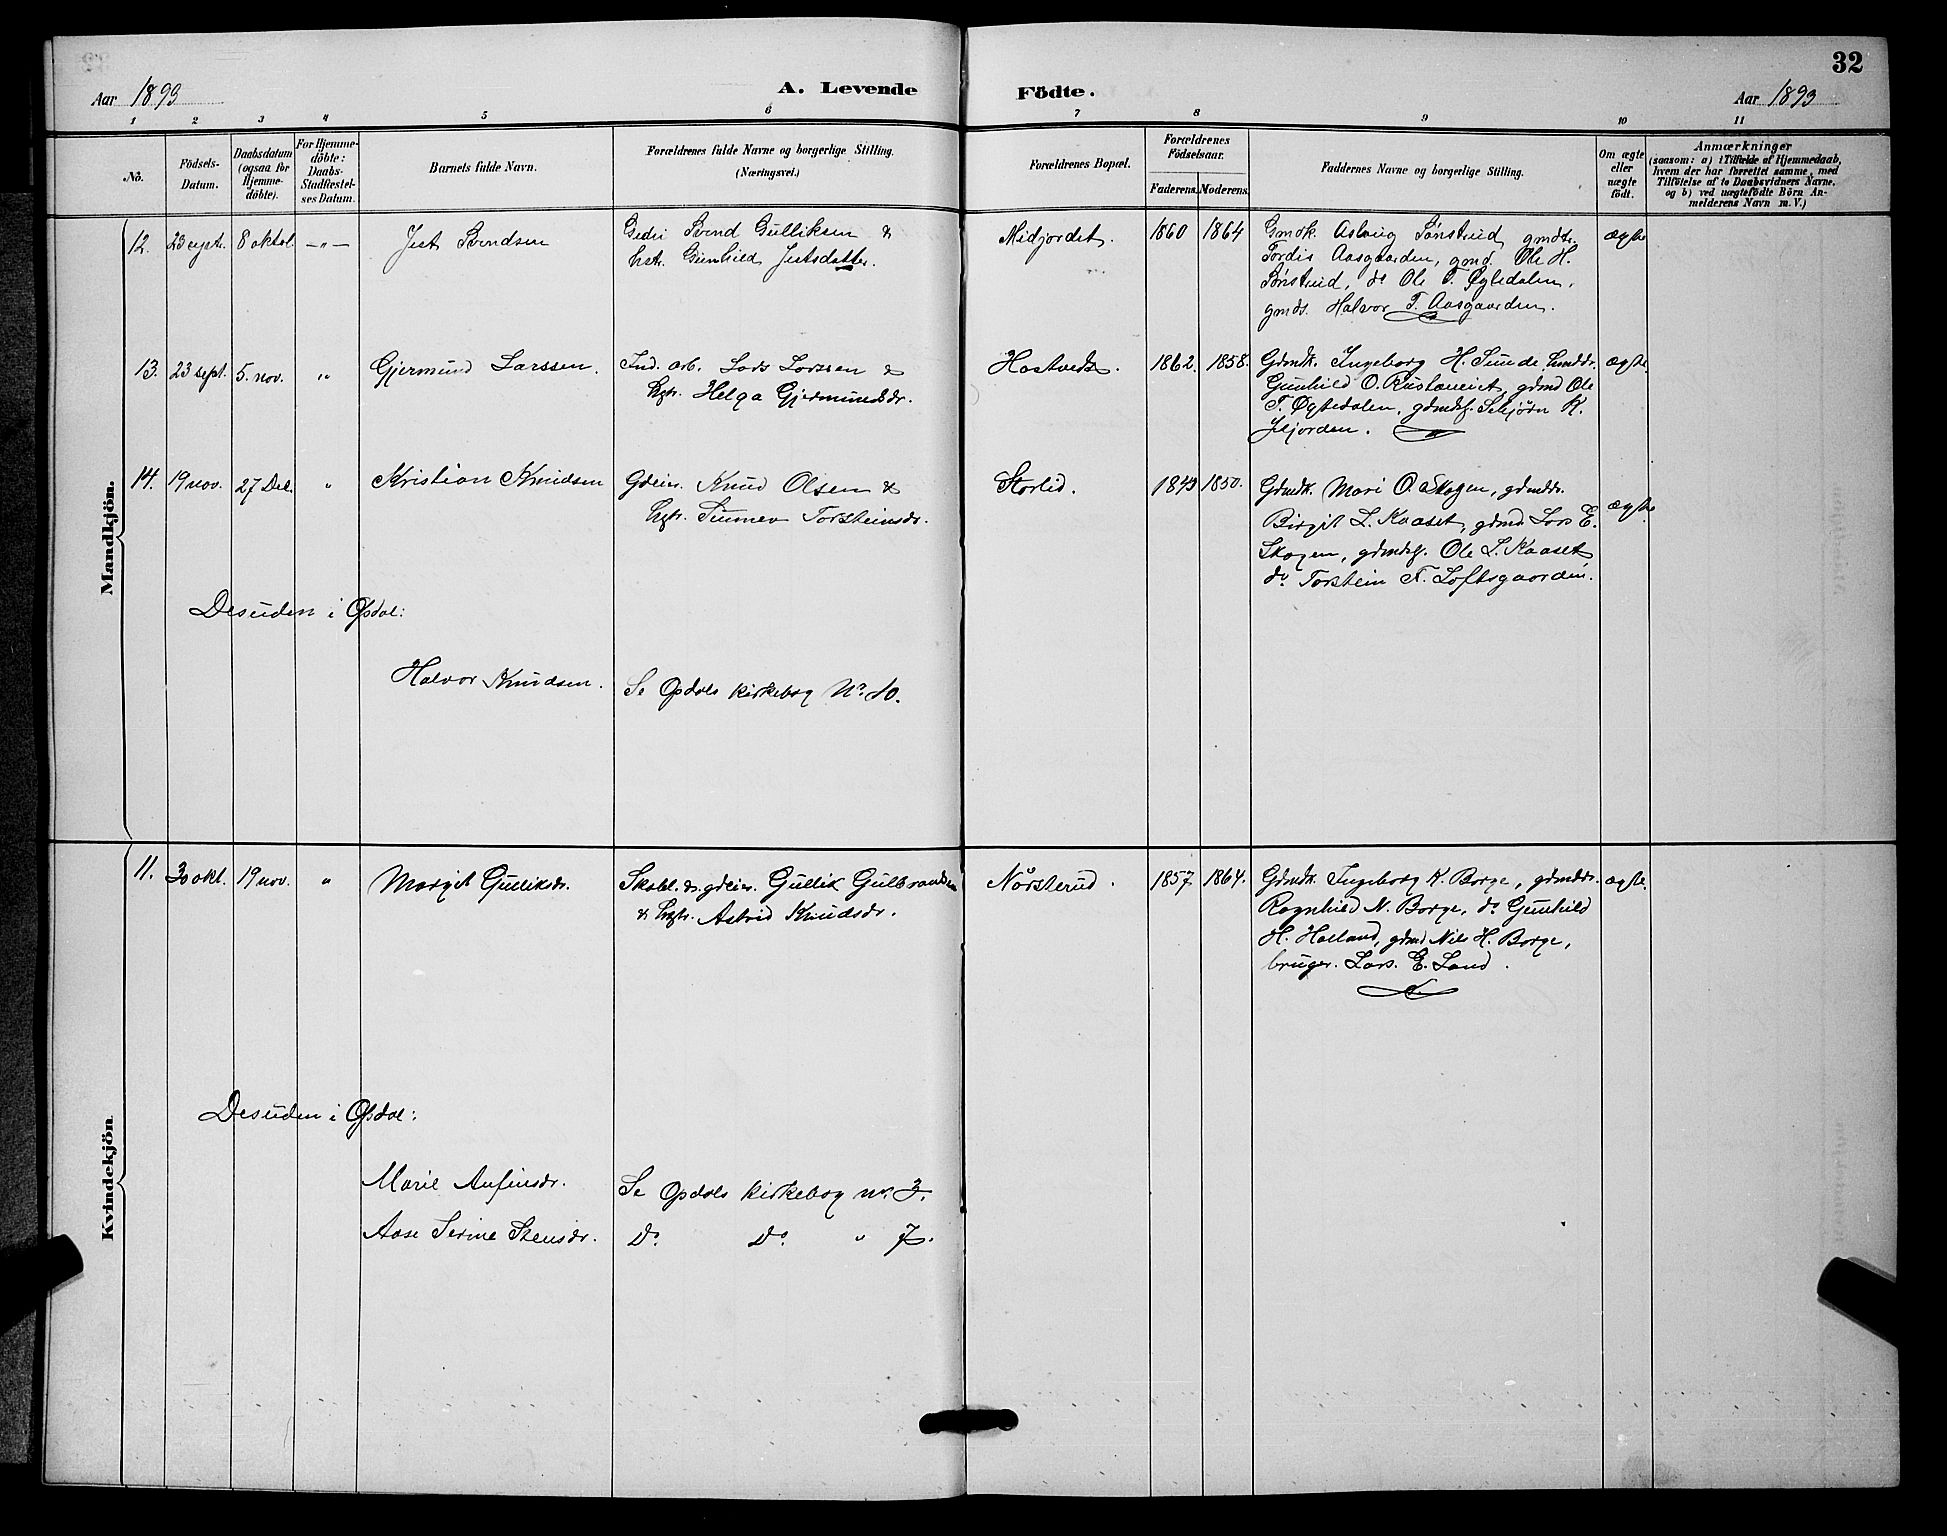 32
Aar 1893
A. Levende Födte.
Aar 1893
1 2 3 4 5 6 7 8 9 10 11
No.
Födsels-Datum.
Daabsdatum (ogsaa for Hjemme-döbte).
For Hjemme-döbte: Daabs-Stadfæstel-ses Datum.
Barnets fulde Navn.
Forældrenes fulde Navne og borgerlige Stilling.
(Næringsvei.)
Forældrenes Bopæl.
Forældrenes Födselsaar.
Faderens. Moderens.
Faddernes Navne og borgerlige Stilling.
Om ægte eller uægte födt.
Anmærkninger
(saasom: a) i Tilfælde af Hjemmedaab,
hvem der har forrettet samme, med
Tilföielse af to Daabsvidners Navne,
og b) ved uægtefödte Börn An-
melderens Navn m. V.)
Mandkjön.
12. 23 sept. 8 oktol -"- Jest Svendsen
Svend Gulliksen &
Gunhild Jestsdatter.
Midjordet. 1860 1864
Aslaug Sønsterud, gmdtr.
Tordis Aasgaarden, gmd. Ole H.
Sønsterud, do Ole T. Øytedalen,
gmds. Halvor T. Aasgaarden.
ægte
13. 23 sept. 5. nov. " Gjermund Larssen.
Ind. arb. Lars Larssen &
Hgtr. Helga Gjermundsdr.
Hostvedt. 1862. 1858.
Gdmdk. Ingeborg H. Sunde,
Gunhild O. Rustaneiet, gdmd Ole
T. Øytedalen, gdmdsf. Sebjørn K.
Jljorden.
ægte
14. 19 nov. 27 Dec. " Kristian Knudsen
Gdeier. Knud Olsen &
Hgtr. Sünnev Torsteinsdr.
Storlid. 1843 1850.
Gdmdk. Mari O. Skogen, gdmddr.
Birgit L. Kaaset, gdmd Lars E.
Skogen, gdmdsf. Ole L. Kaaset
do Torstein T. Loftsgaarden.
ægte
Desuden i Opdal:
Halvor Knudsen.
Se Opdals kirkebog No 10.
Kvindekjön
11. 30 okt. 19 nov. " Margit Gulliksdr.
Skobl. & gdeier. Gullik Gulbrandsen
& Hgtr. Astrid Knudsdr.
Nörsterud. 1857 1864.
Gdmdk. Ingeborg K. Borge, gdmddr.
Ragnhild N. Borge, do Gunhild
H. Holland, gdmd Nils H. Borge,
bruger. Lars. E. Land.
ægte.
Desuden i Opdal:
Marie Anfinsdr.
Se Opdals kirkebog no. 3.
Aase Serine Stensdr.
Do Do " 7.